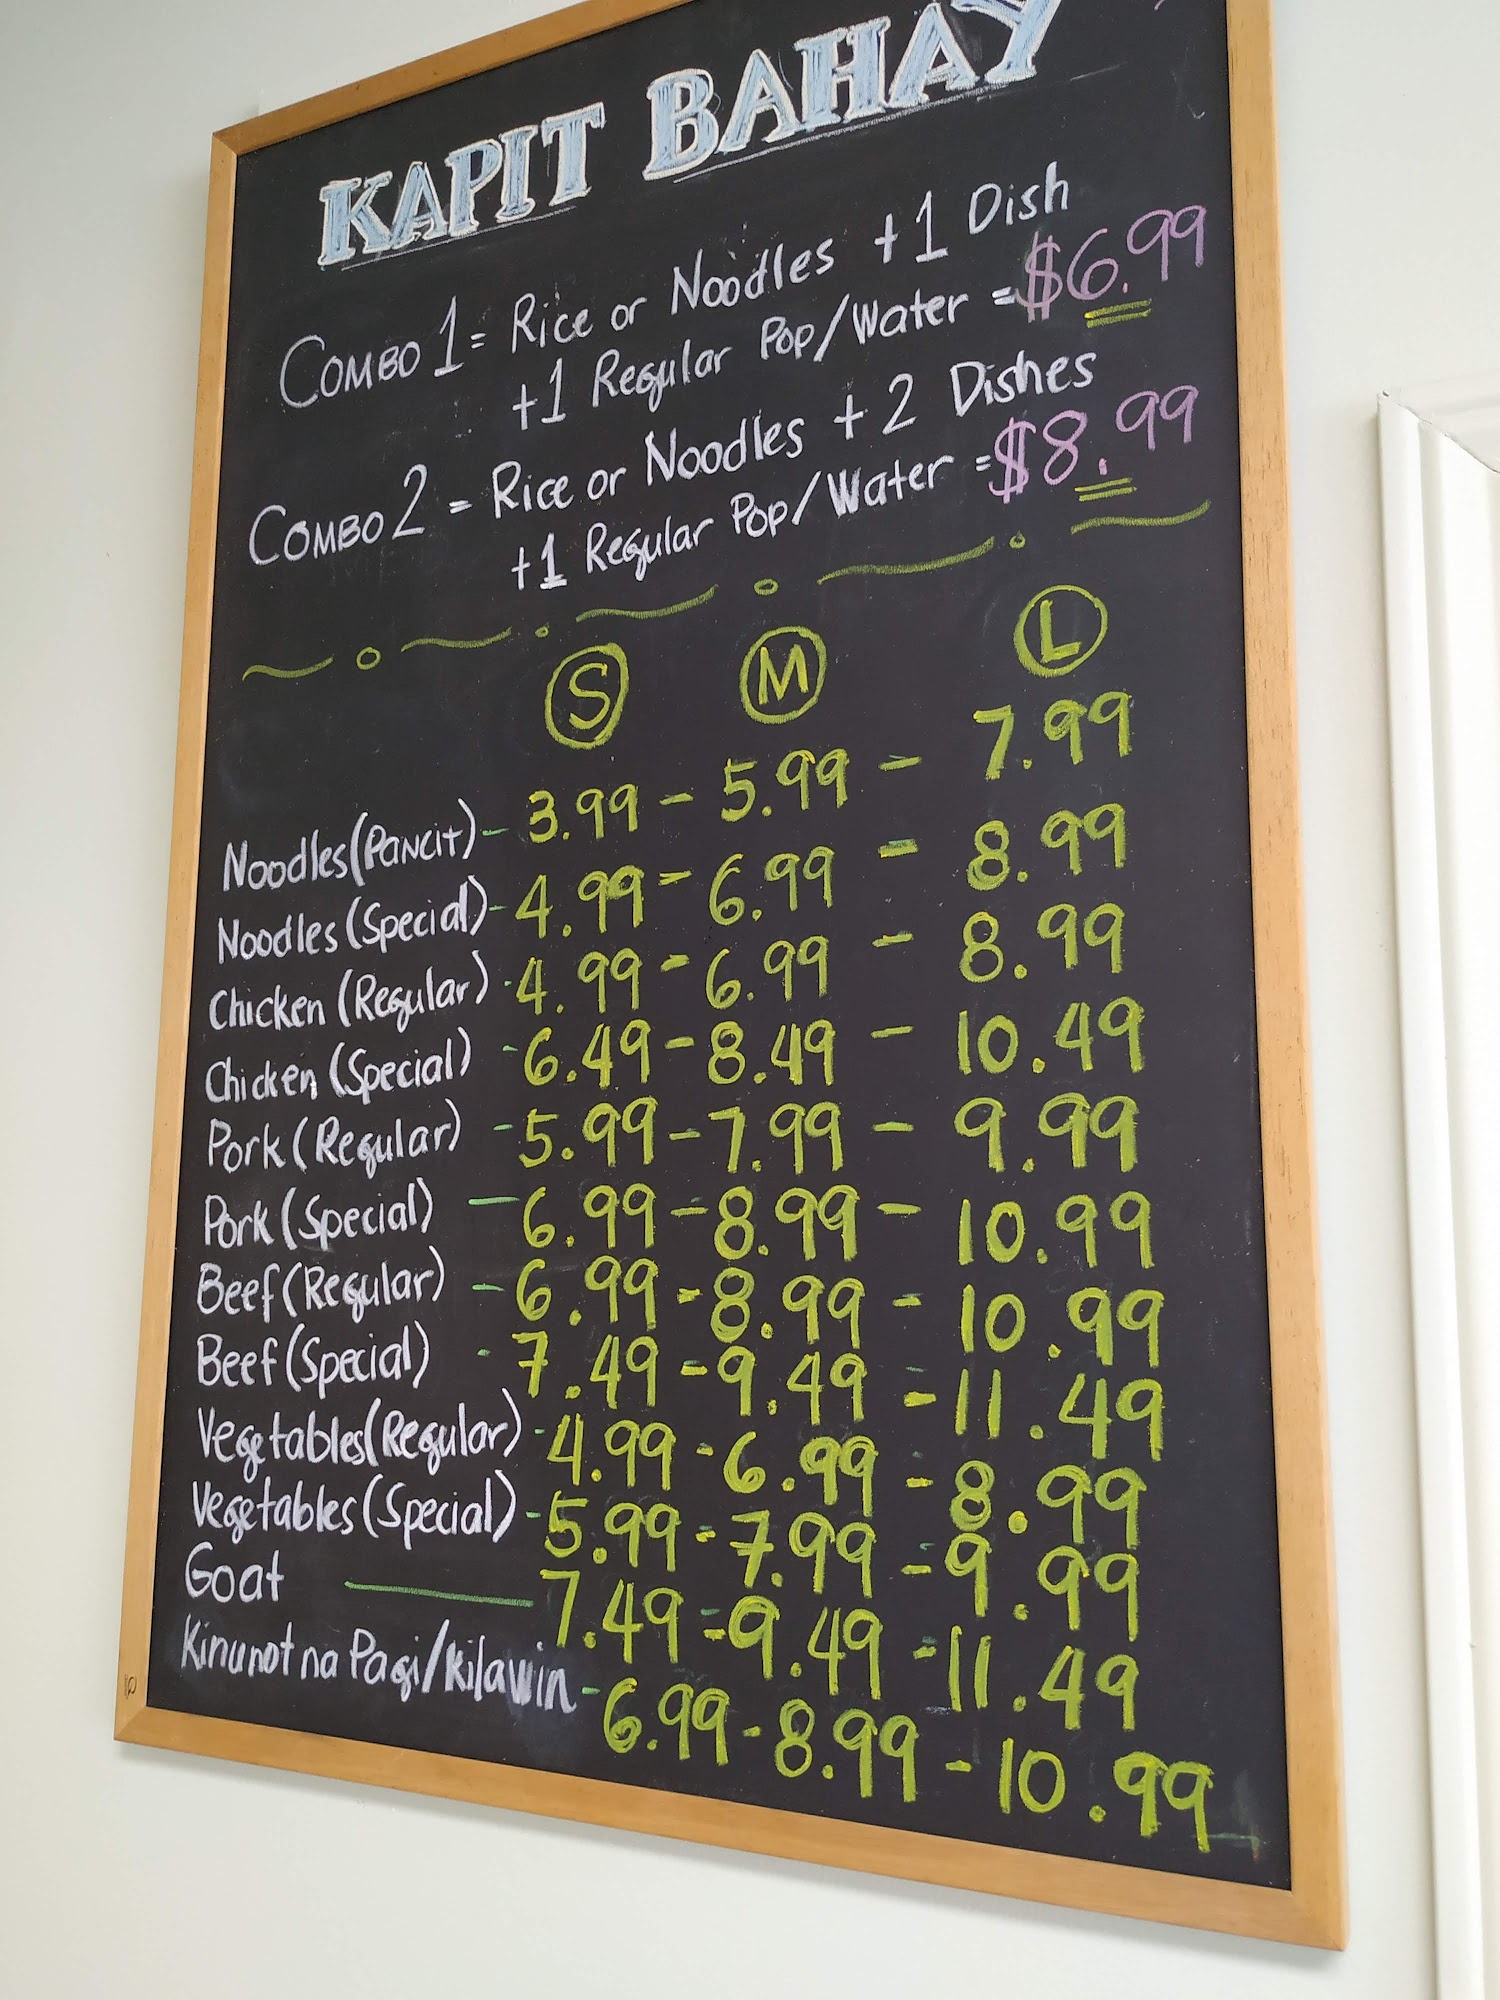 KAPIT BAHAY
COMBO 1 = Rice or Noodles + 1 Dish
+1 Regular Pop/Water = $6.99
COMBO 2 = Rice or Noodles + 2 Dishes
+1 Regular Pop/Water = $8.99
S M L
Noodles (PANCIT) - 3.99 - 5.99 - 7.99
Noodles (Special) - 4.99 - 6.99 - 8.99
Chicken (Regular) - 4.99 - 6.99 - 8.99
Chicken (Special) - 6.49 - 8.49 - 10.49
Pork (Regular) - 5.99 - 7.99 - 9.99
Pork (Special) - 6.99 - 8.99 - 10.99
Beef (Regular) - 6.99 - 8.99 - 10.99
Beef (Special) - 7.49 - 9.49 - 11.49
Vegetables (Regular) - 4.99 - 6.99 - 8.99
Vegetables (Special) - 5.99 - 7.99 - 9.99
Goat - 7.49 - 9.49 - 11.49
Kinunot na Pagi/Kilawin - 6.99 - 8.99 - 10.99